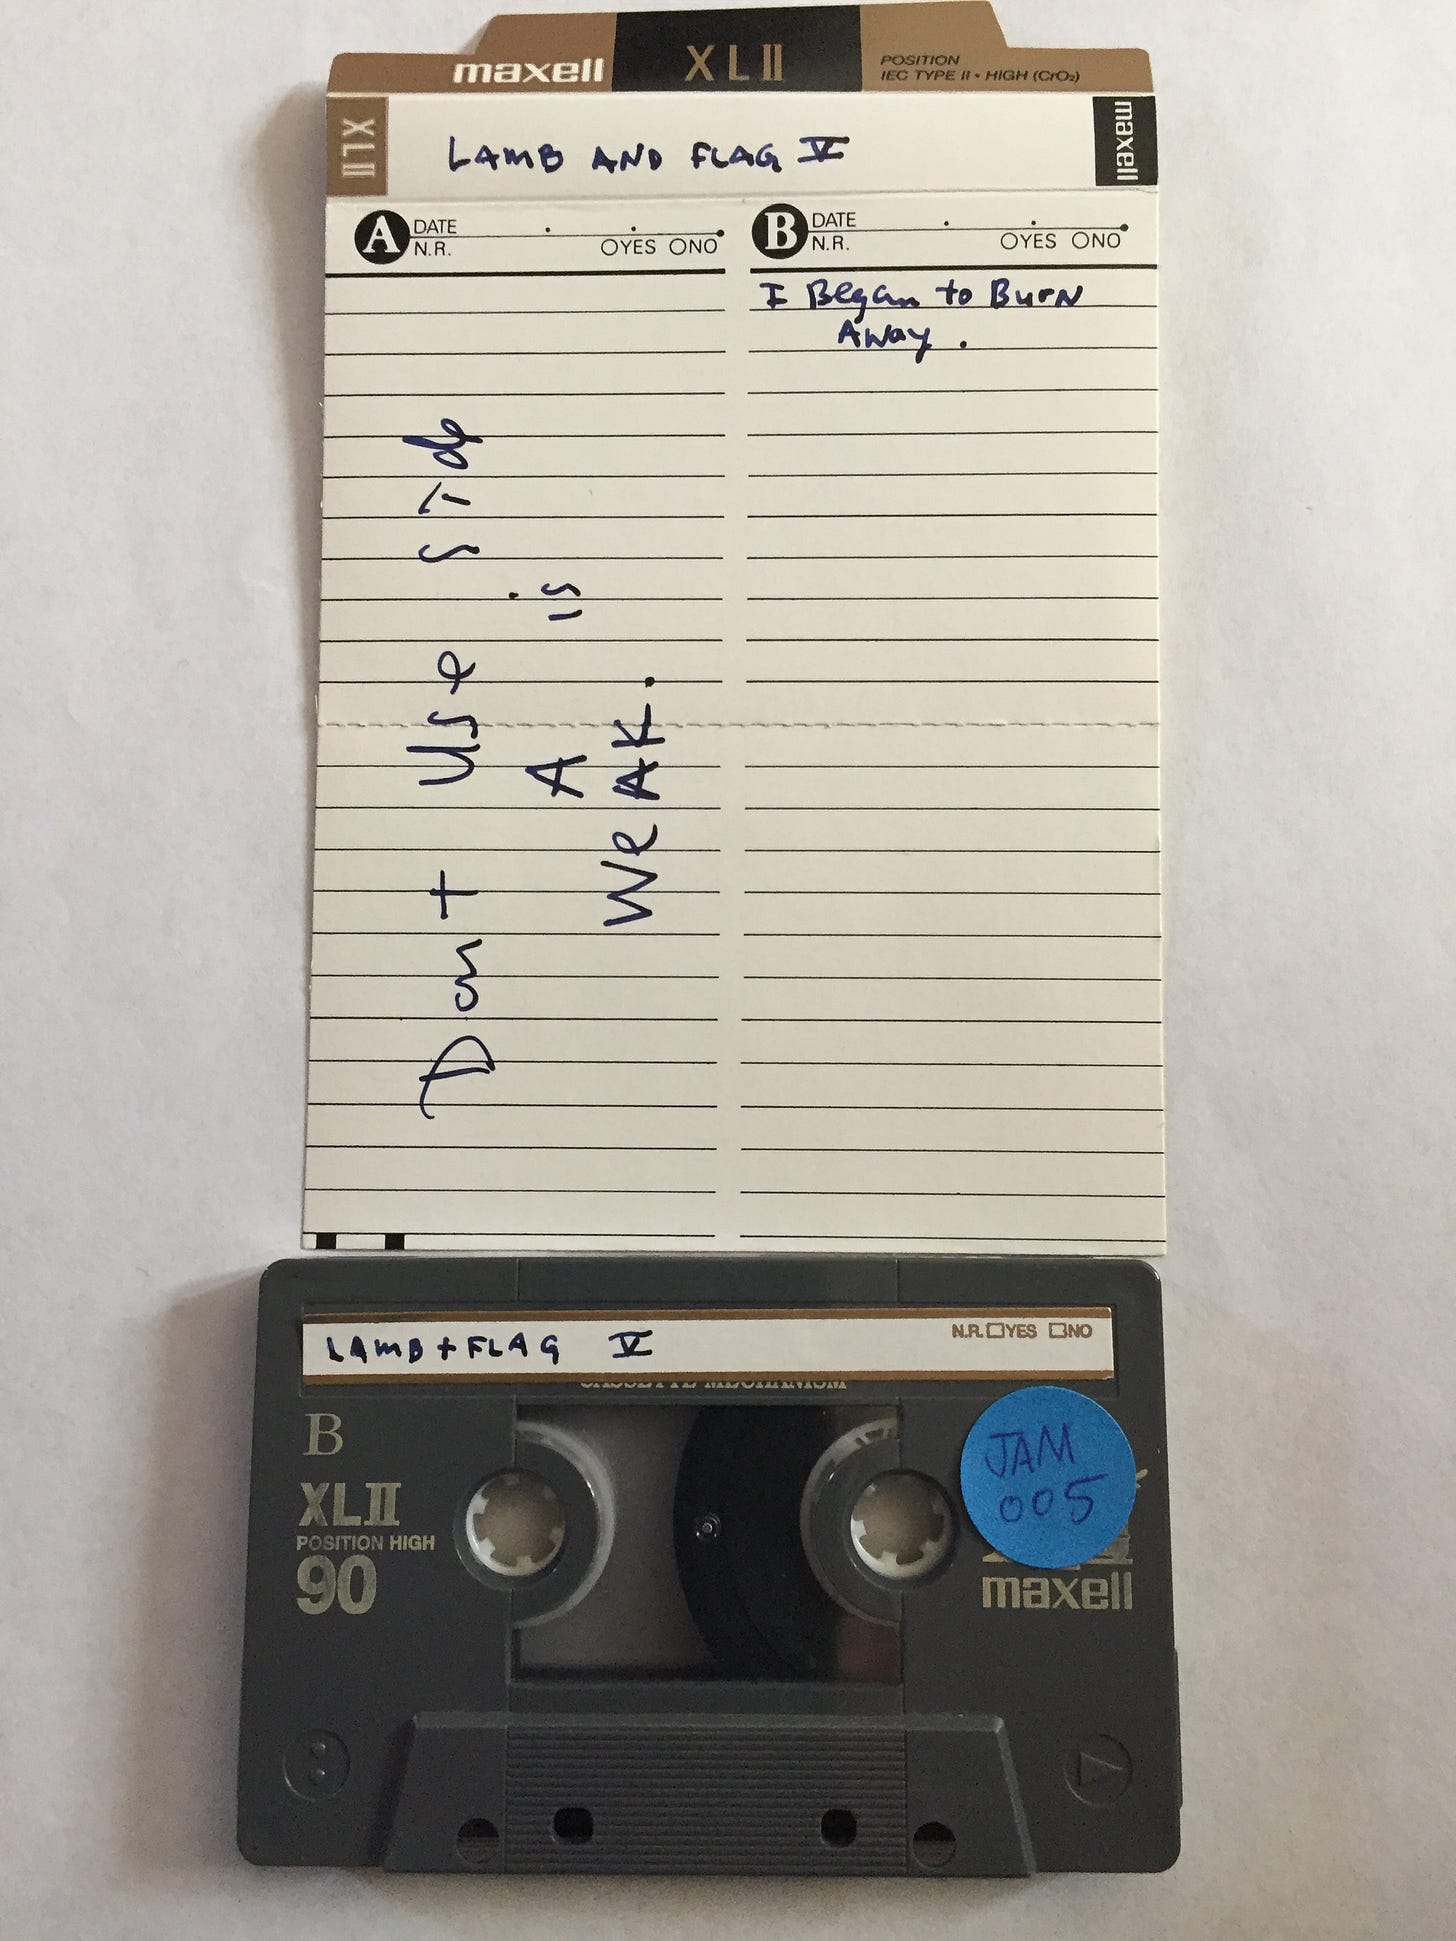 maxell XLII POSITION
IEC TYPE II • HIGH (CrO₂)
XLII LAMB AND FLAG V maxell
A DATE
N.R. YES NO
B DATE
N.R. YES NO
I Began to Burn
Away.
Dont Use Side
A is
WeAK.
LAMB + FLAG V
N.R. YES NO
CASSETTE MECHANISM
B
XLII
POSITION HIGH
90
JAM
005
maxell